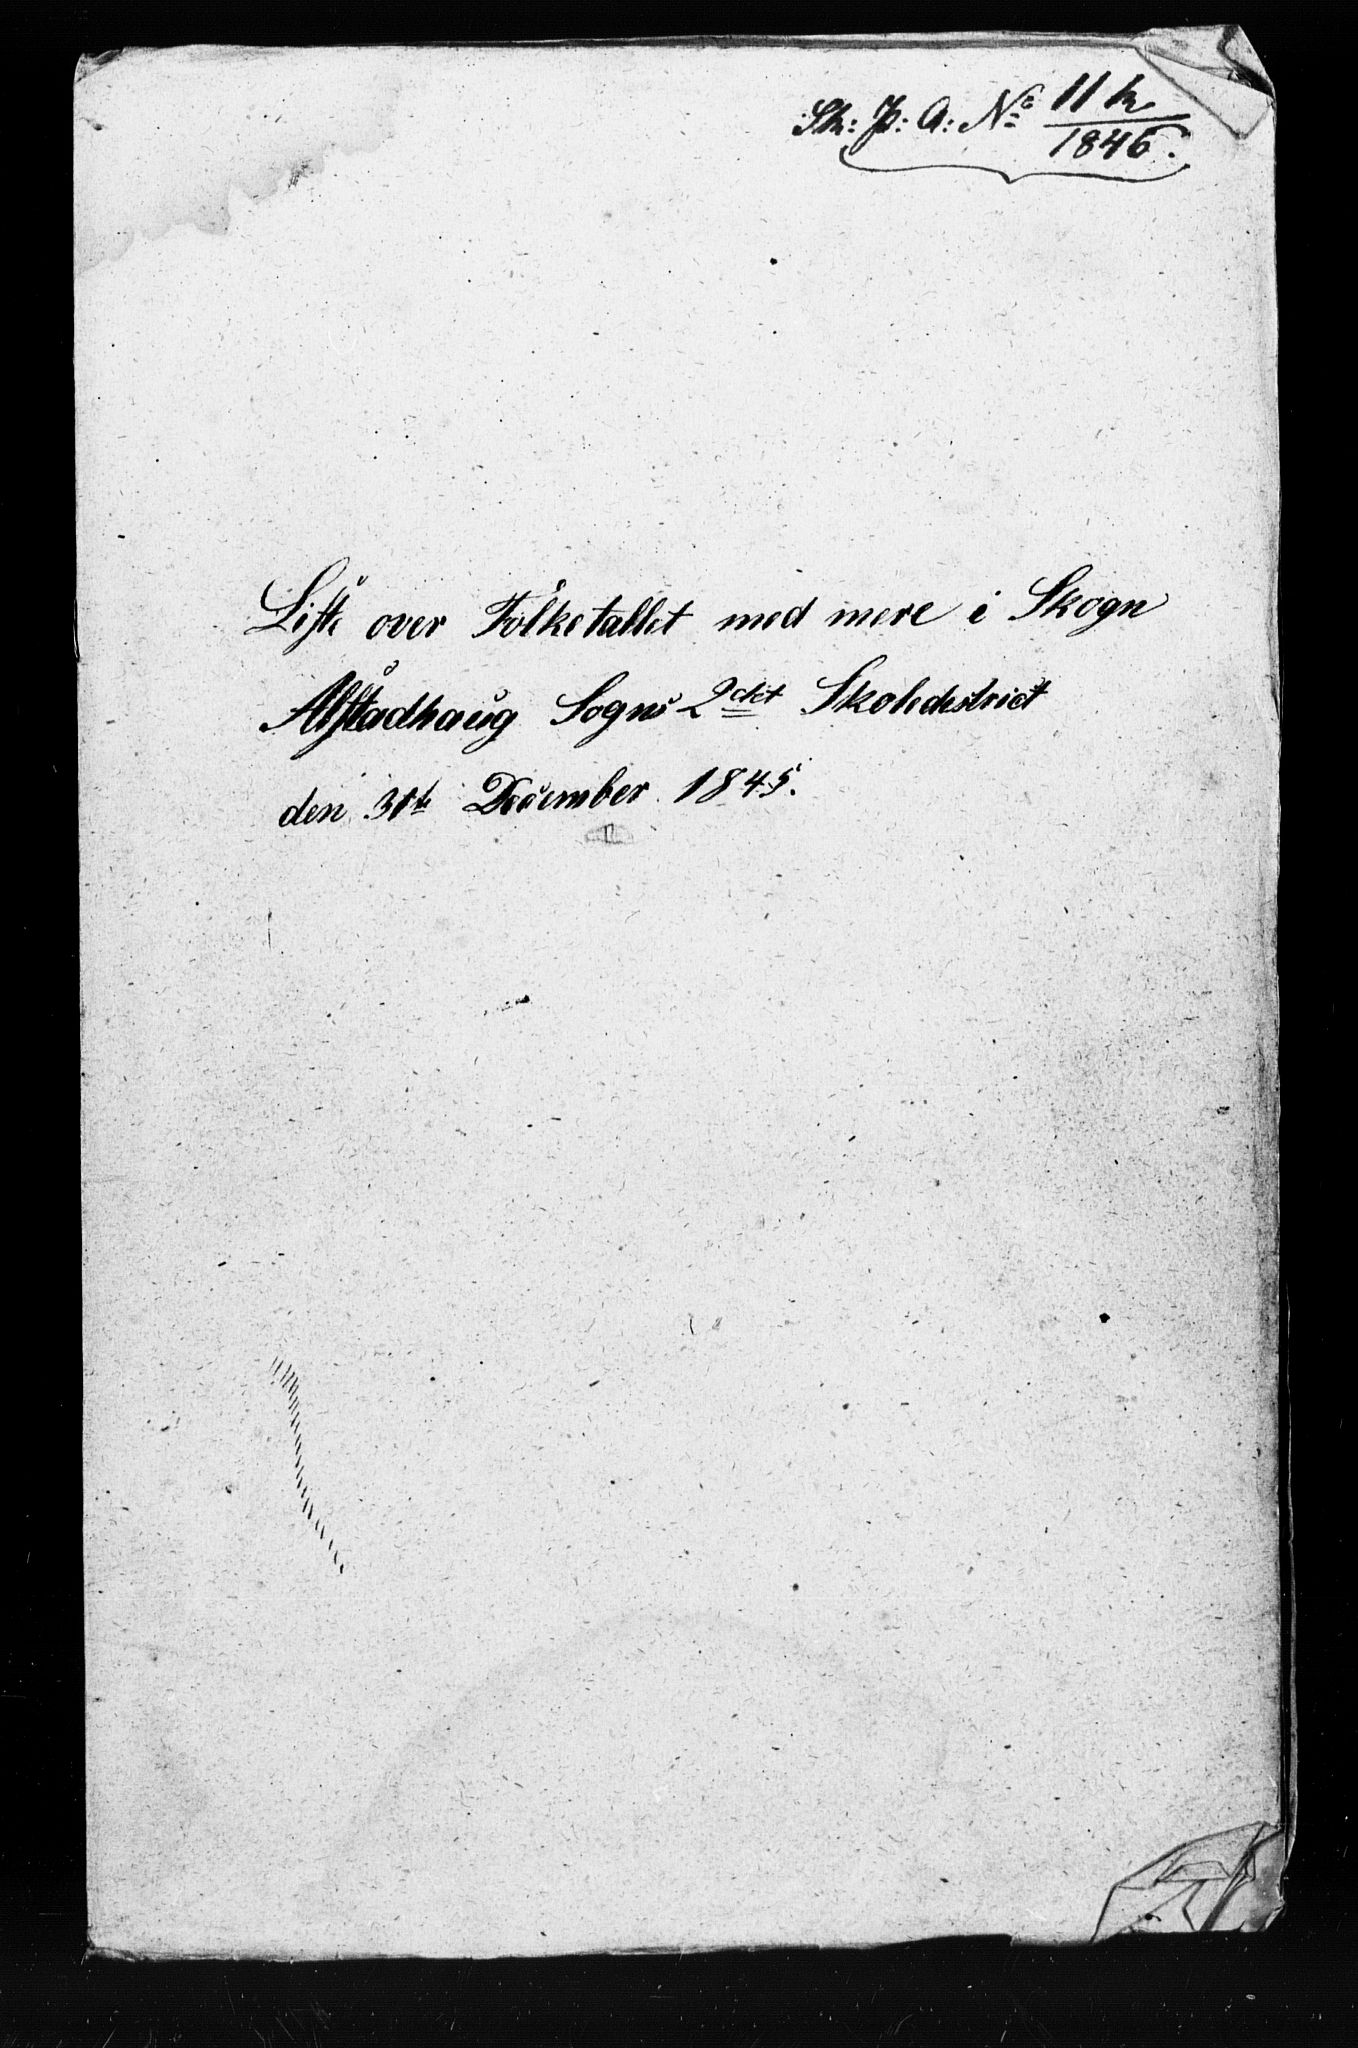 Sk: P: A: No 11 k/1846.
Liste over Folketallet med mere i Skogn
Alstadhaug Sogns 2det Skoledistrict
den 31te December 1845.